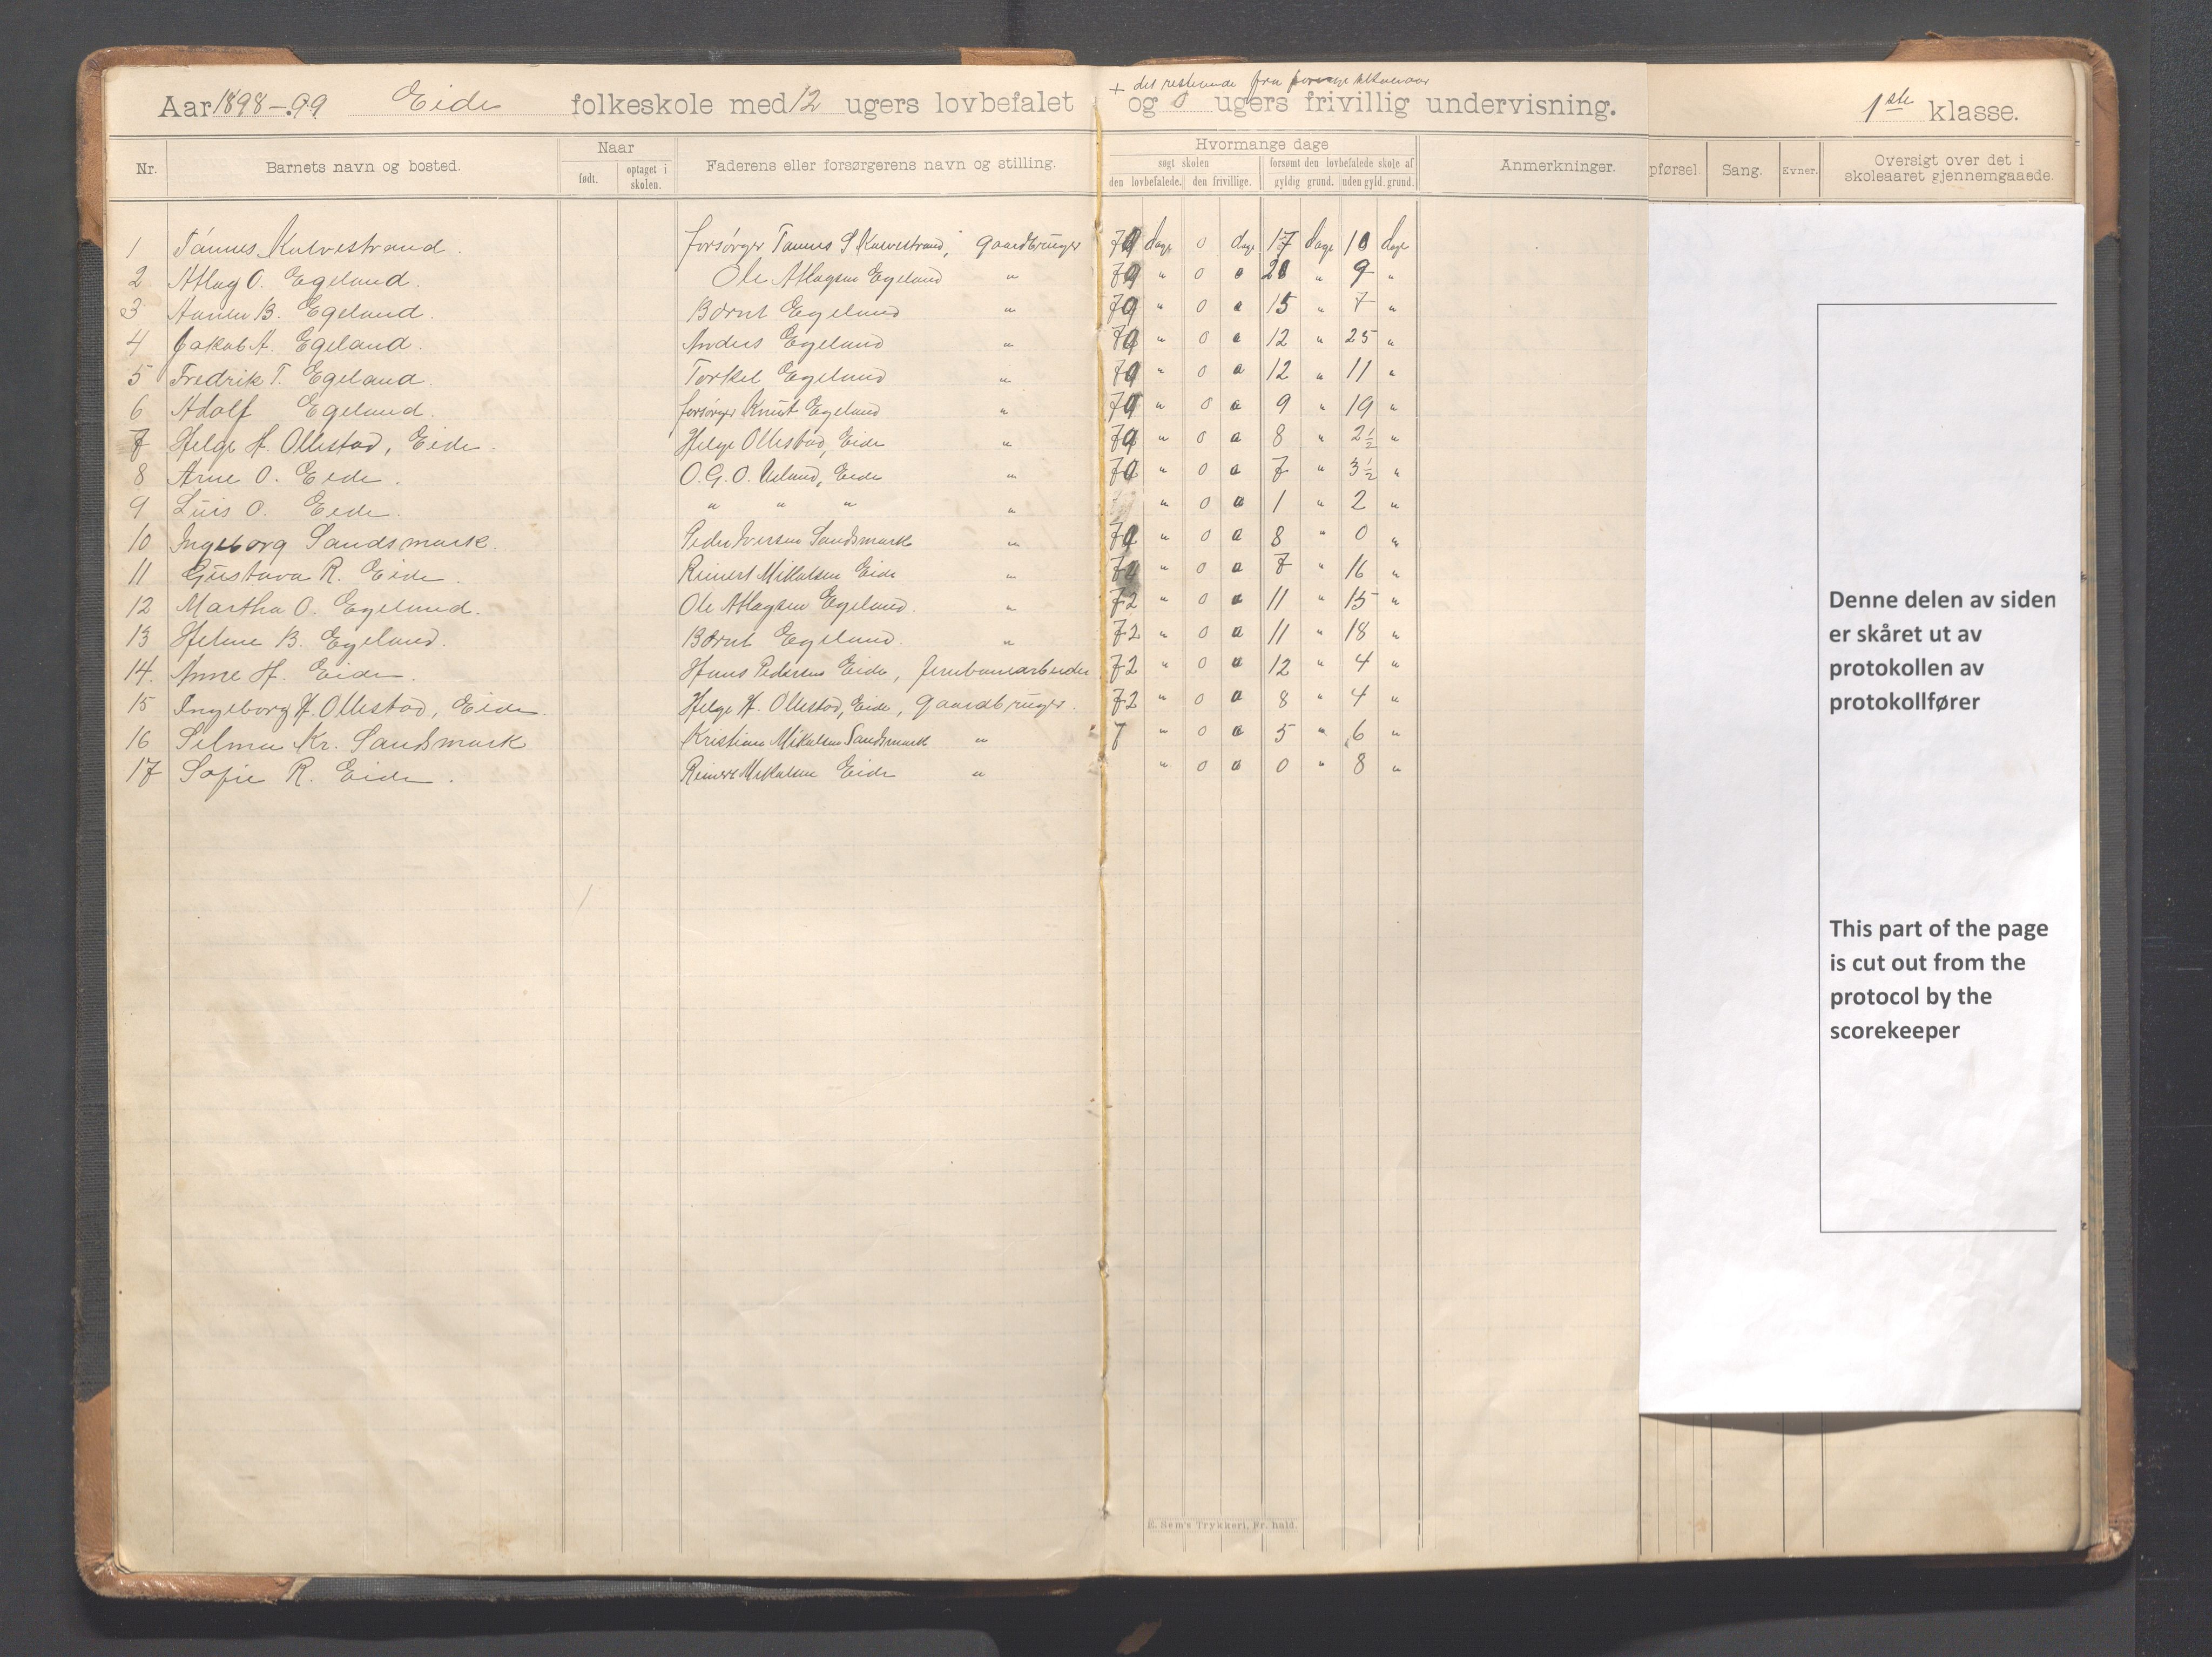 + det resterende fra forrige skoleaar
Aar 1898-99 Eide folkeskole med 12 ugers lovbefalet og 0 ugers frivillig undervisning. 1ste klasse.
Nr. Barnets navn og bosted. Naar født. optaget i skolen. Faderens eller forsørgerens navn og stilling. Hvormange dage søgt skolen den lovbefalede. den frivillige. forsømt den lovbefalede skole af gyldig grund. uden gyld. grund. Anmerkninger. pførsel. Sang. Evner. Oversigt over det i skoleaaret gjennemgaaede.
1 Tønnes Kulvestrand. forsørger Tønnes S Kulvestrand, gaardbruger dage 0 dage 17 dage 10 dage
2 Atlag O. Egeland. Ole Atlagsen Egeland " " 0 " 9 "
3 B. Egeland. Børnt Egeland " " 0 15 " 7 "
4 Jakob A. Egeland. Anders Egeland " " 0 12 " 25 "
5 Fredrik T. Egeland. Torkel Egeland " " 0 12 " 11 "
6 Adolf Egeland. forsørger Knut Egeland " " 0 9 " 19 "
7 Helge H. Ollestad, Eide. Helge Ollestad, Eide " " 0 8 " 2½ "
8 Arne O. Eide. O. G. O. Eide " " 0 7 " 3½ "
9 Luis O. Eide. " " " " " 0 1 " 2 "
10 Ingeborg Sandsmark. Peder Iversen Sandsmark " " 0 8 " 0 "
11 Gustava R. Eide. Reinert Mikalsen Eide " " 0 7 " 16 "
12 Martha O. Egeland. Ole Atlagsen Egeland. " 72 " 0 11 " 15 "
13 Helene B. Egeland. Børnt Egeland. " 72 " 0 11 " 18 "
14. Anne H. Eide. Hans Pedersen Eide, jernbanearbeider 72 " 0 12 " 4 "
15 Ingeborg H. Ollestad, Eide. Helge H. Ollestad, Eide, gaardbruger. 72 " 0 8 " 4 "
16 Selma Kr. Sandsmark Kristian Mikalsen Sandsmark " 7 " 0 5 " 6 "
17 Sofie R. Eide. Reinert Mikalsen Eide " " 0 0 " 8 "
Denne delen av siden
er skåret ut av
protokollen av
protokollfører
This part of the page
is cut out from the
protocol by the
scorekeeper
E. Sem's Trykkeri, Fr. hald.